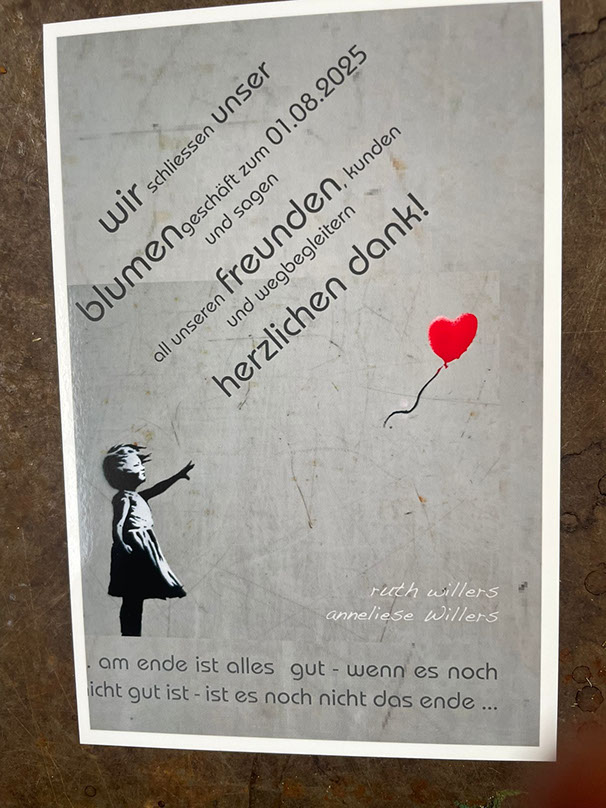 wir schliessen unser
blumengeschäft zum 01.08.2025
und sagen
all unseren freunden, kunden
und wegbegleitern
herzlichen dank!
ruth willers
anneliese Willers
. am ende ist alles gut - wenn es noch
icht gut ist - ist es noch nicht das ende ...